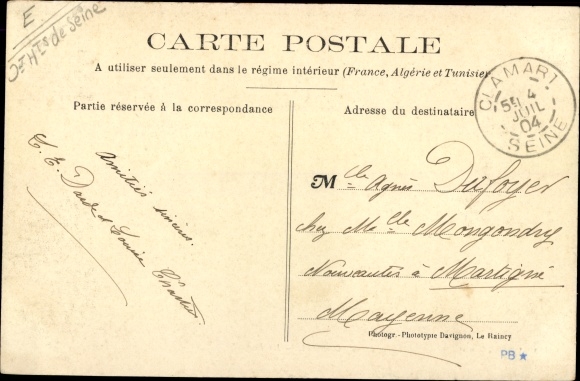 E
Hts de Seine
CARTE POSTALE
A utiliser seulement dans le régime intérieur (France, Algérie et Tunisie)
Partie réservée à la correspondance
Adresse du destinataire
CLAMART
5E 4
JUIL
04
SEINE
Amitiés sincères.
Louise
Mlle Agnès Dufoyer
chez Mlle Mongondry
Nouveautés à Martigné
Mayenne
Photogr.-Phototypie Davignon, Le Raincy
PB ★